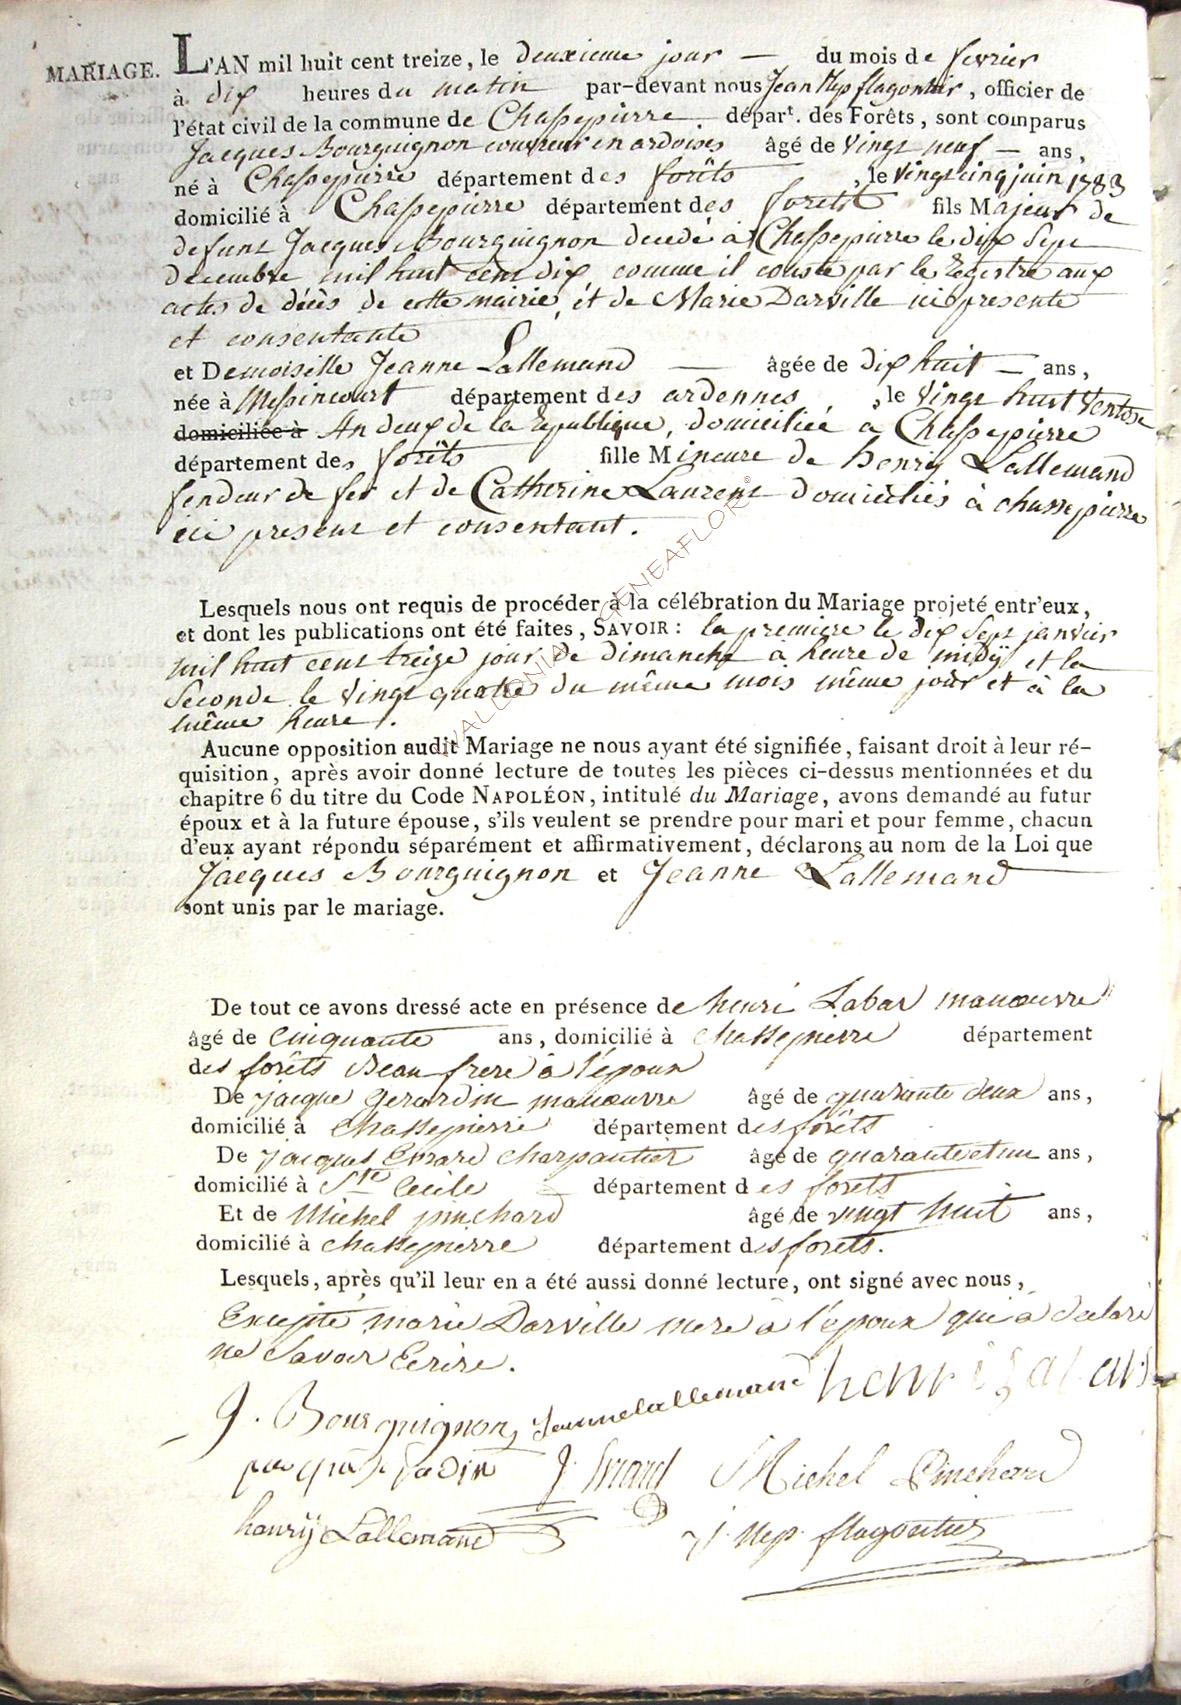 MARIAGE. L'AN mil huit cent treize, le deuxieme jour — du mois de fevrier
à dix heures du matin par-devant nous Jean Nep flagontier, officier de
l'état civil de la commune de Chassepierre départ. des Forêts, sont comparus
Jacques Bourguignon couvreur en ardoises âgé de vingt neuf — ans,
né à Chassepierre département des forêts, le vingt cinq juin 1783
domicilié à Chassepierre département des forêts fils Majeur de
defunt Jacques Bourguignon decedé à Chassepierre le dix Sept
decembre mil huit cent dix comme il conste par le Registre aux
actes de décès de cette mairie, et de Marie Darville ici presente
et consentante
et Demoiselle Jeanne Lallemand — âgée de dix huit — ans,
née à Messincourt département des ardennes, le vingt huit Ventose
domiciliée à An deux de la Republique, domiciliée à Chassepierre
département des forêts fille Mineure de henry Lallemand
fendeur de fer et de Catherine Laurent domiciliés à chassepierre
ici present et consentant.
Lesquels nous ont requis de procéder à la célébration du Mariage projeté entr'eux,
et dont les publications ont été faites, SAVOIR : la premiere le dix Sept janvier
mil huit cent treize jour de dimanche à heure de midÿ et la
Seconde le vingt quatre du même mois même jour et à la
même heure.
Aucune opposition audit Mariage ne nous ayant été signifiée, faisant droit à leur ré-
quisition, après avoir donné lecture de toutes les pièces ci-dessus mentionnées et du
chapitre 6 du titre du Code NAPOLÉON, intitulé du Mariage, avons demandé au futur
époux et à la future épouse, s'ils veulent se prendre pour mari et pour femme, chacun
d'eux ayant répondu séparément et affirmativement, déclarons au nom de la Loi que
Jacques Bourguignon et Jeanne Lallemand
sont unis par le mariage.
De tout ce avons dressé acte en présence de henri Labar manœuvre
âgé de Cinquante ans, domicilié à chassepierre département
des forêts Beau frere à l'époux
De jacque Gerardin manœuvre âgé de quarante deux ans,
domicilié à Chassepierre département des forêts
De jacques Evrard charpantier âgé de quarante et un ans,
domicilié à Ste Cécile département des forets
Et de Michel pinchard âgé de vingt huit ans,
domicilié à chassepierre département des forets.
Lesquels, après qu'il leur en a été aussi donné lecture, ont signé avec nous,
Excepté marie Darville mere à l'époux qui a déclaré
ne Savoir Ecrire.
J. Bourguignon Jeanne lallemand henri labar
J. Evrard Michel Pinchard
henrÿ Lallemand J. Nep. flagontier
WALLONIA GENEAFLOR®